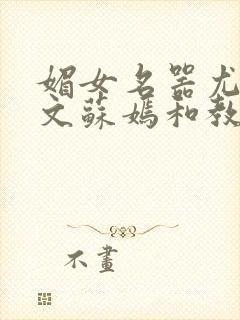 媚女名器尤
文蘇媽和教
不畫